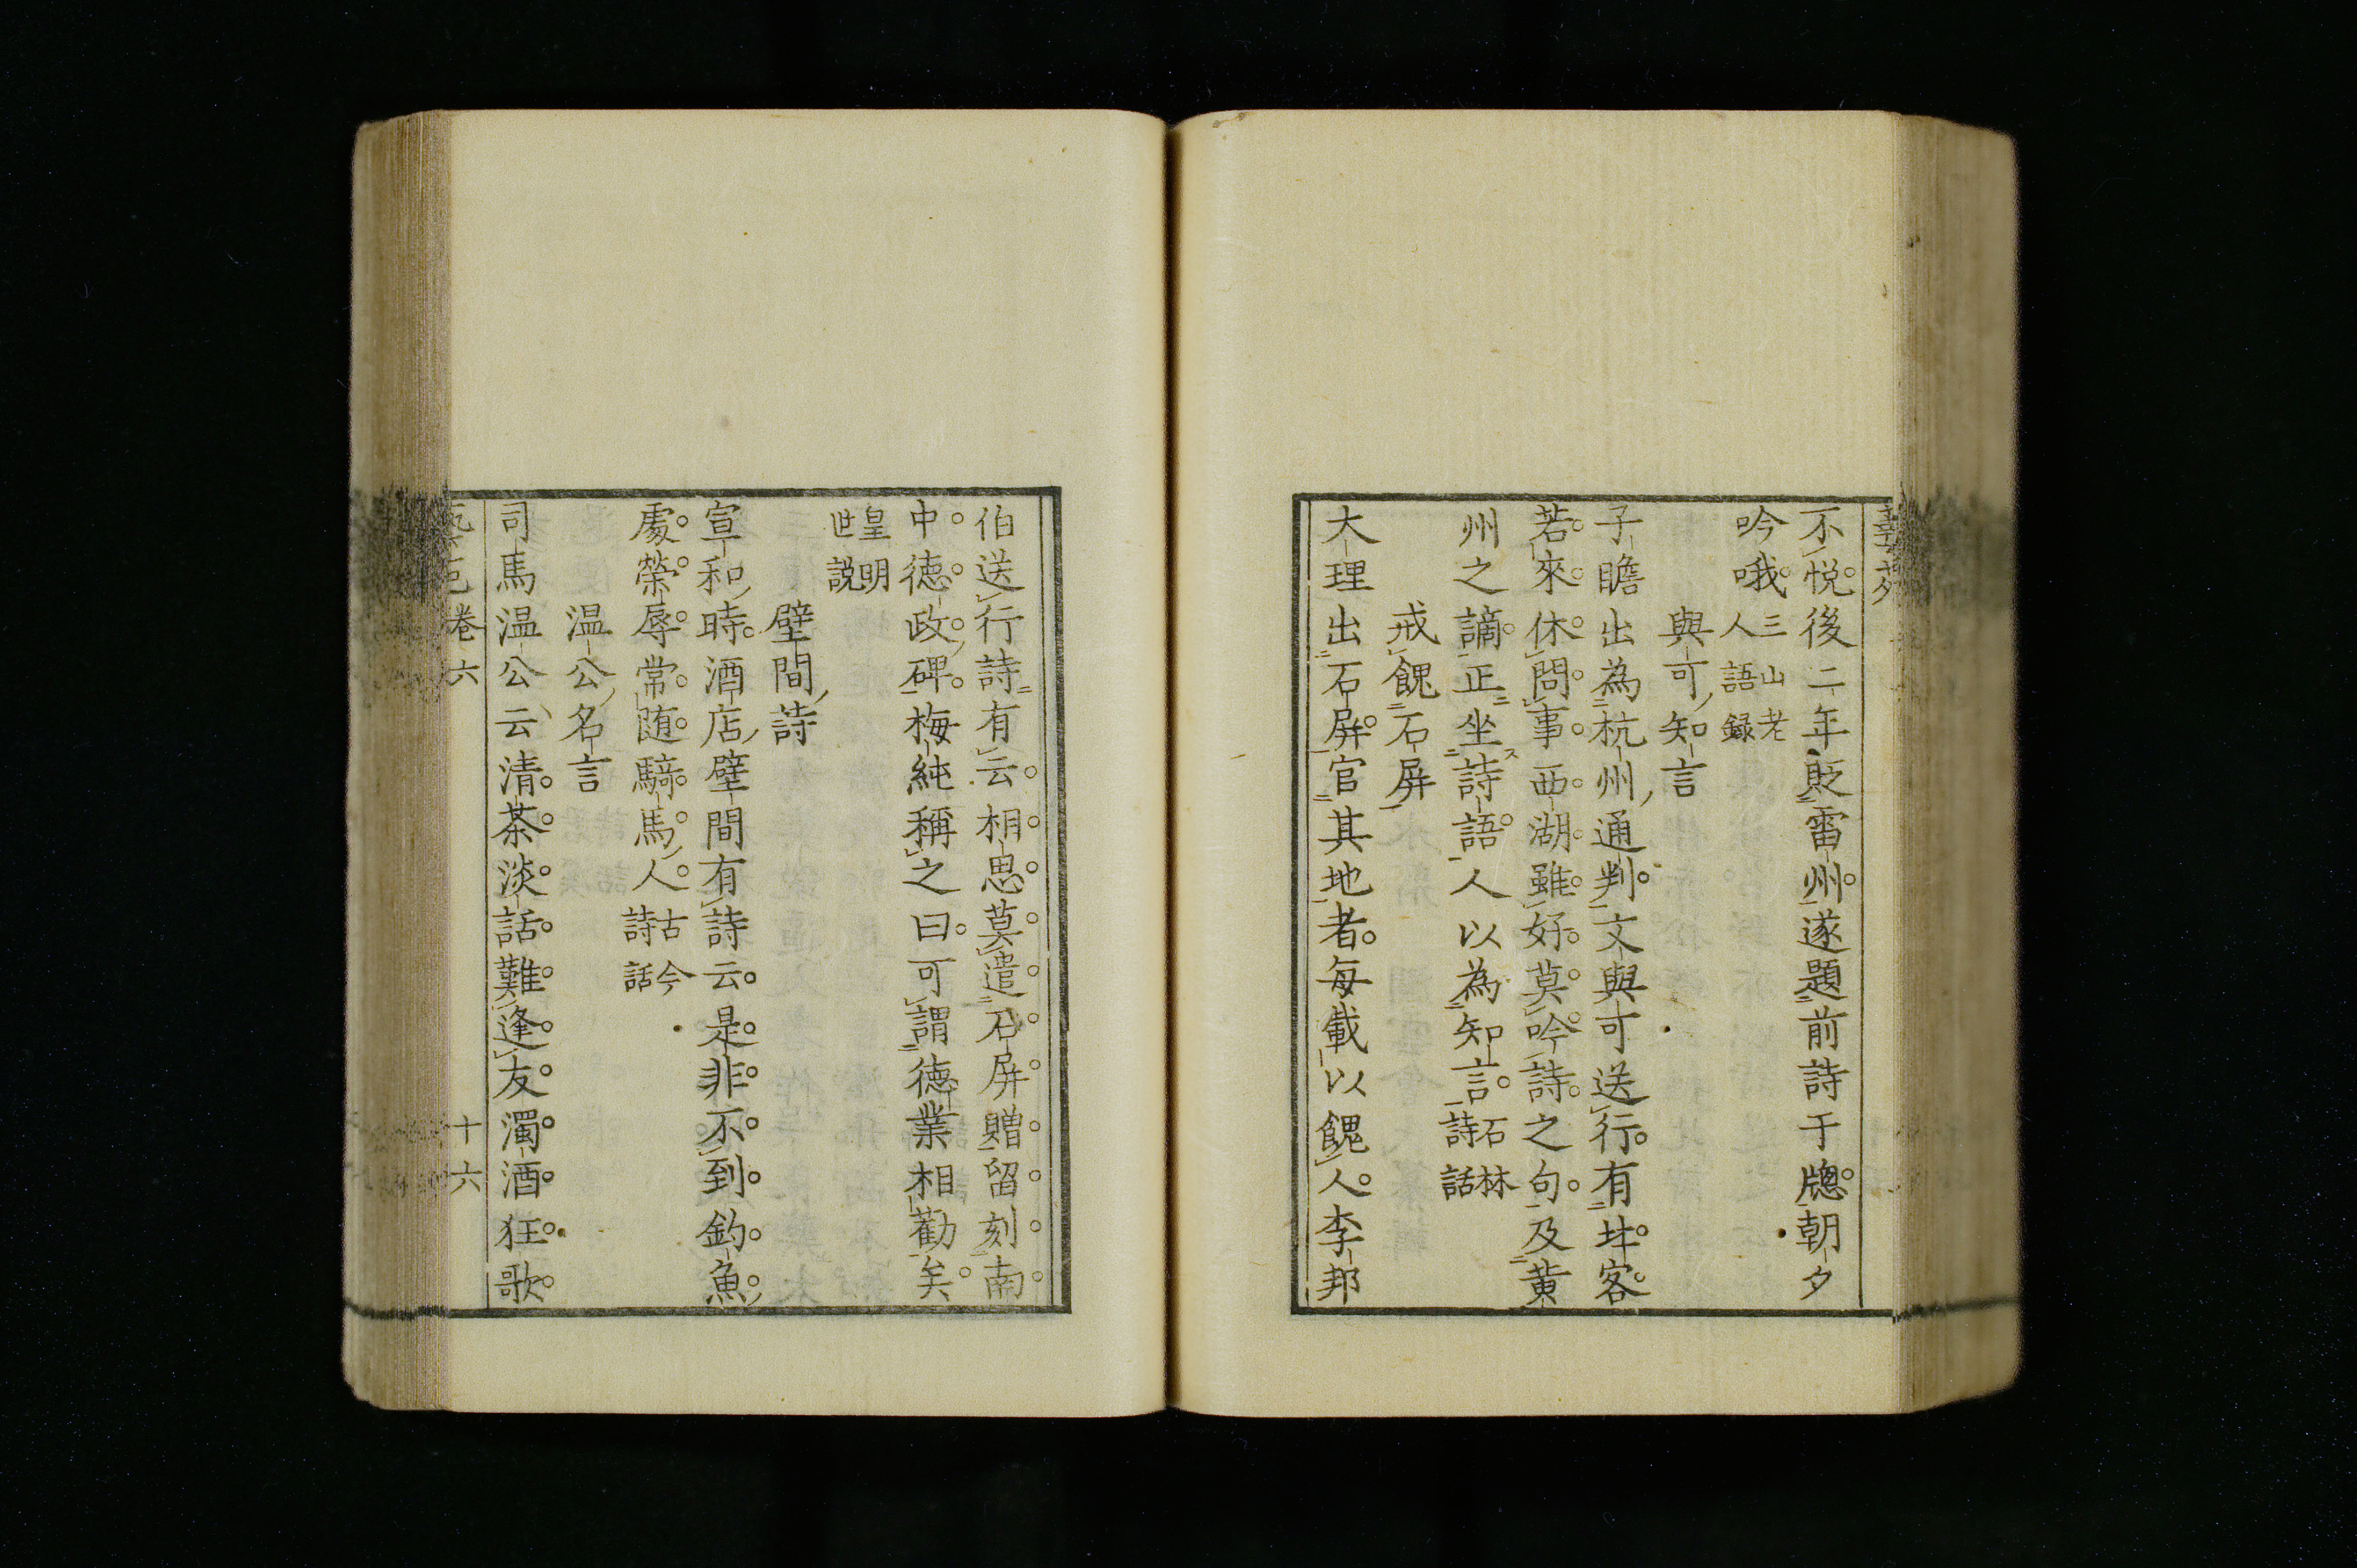 不悦後二年貶雷州遂題前詩于牕朝夕
吟哦三山老人語録
與可知言
子瞻出為杭州通判文與可送行有北客
若來休問事西湖雖好莫吟詩之句及黄
州之謫正坐詩語人以為知言石林詩話
戒餽石屏
大理出石屏官其地者每載以餽人李邦
伯送行詩有云相思莫遣石屏贈留刻南
中徳政碑梅純稱之曰可謂徳業相勸矣
皇明世説
壁間詩
宣和時酒店壁間有詩云是非不到釣魚
處榮辱常随騎馬人古今詩話
温公名言
司馬温公云清茶淡話難逢友濁酒狂歌
卷六 十六